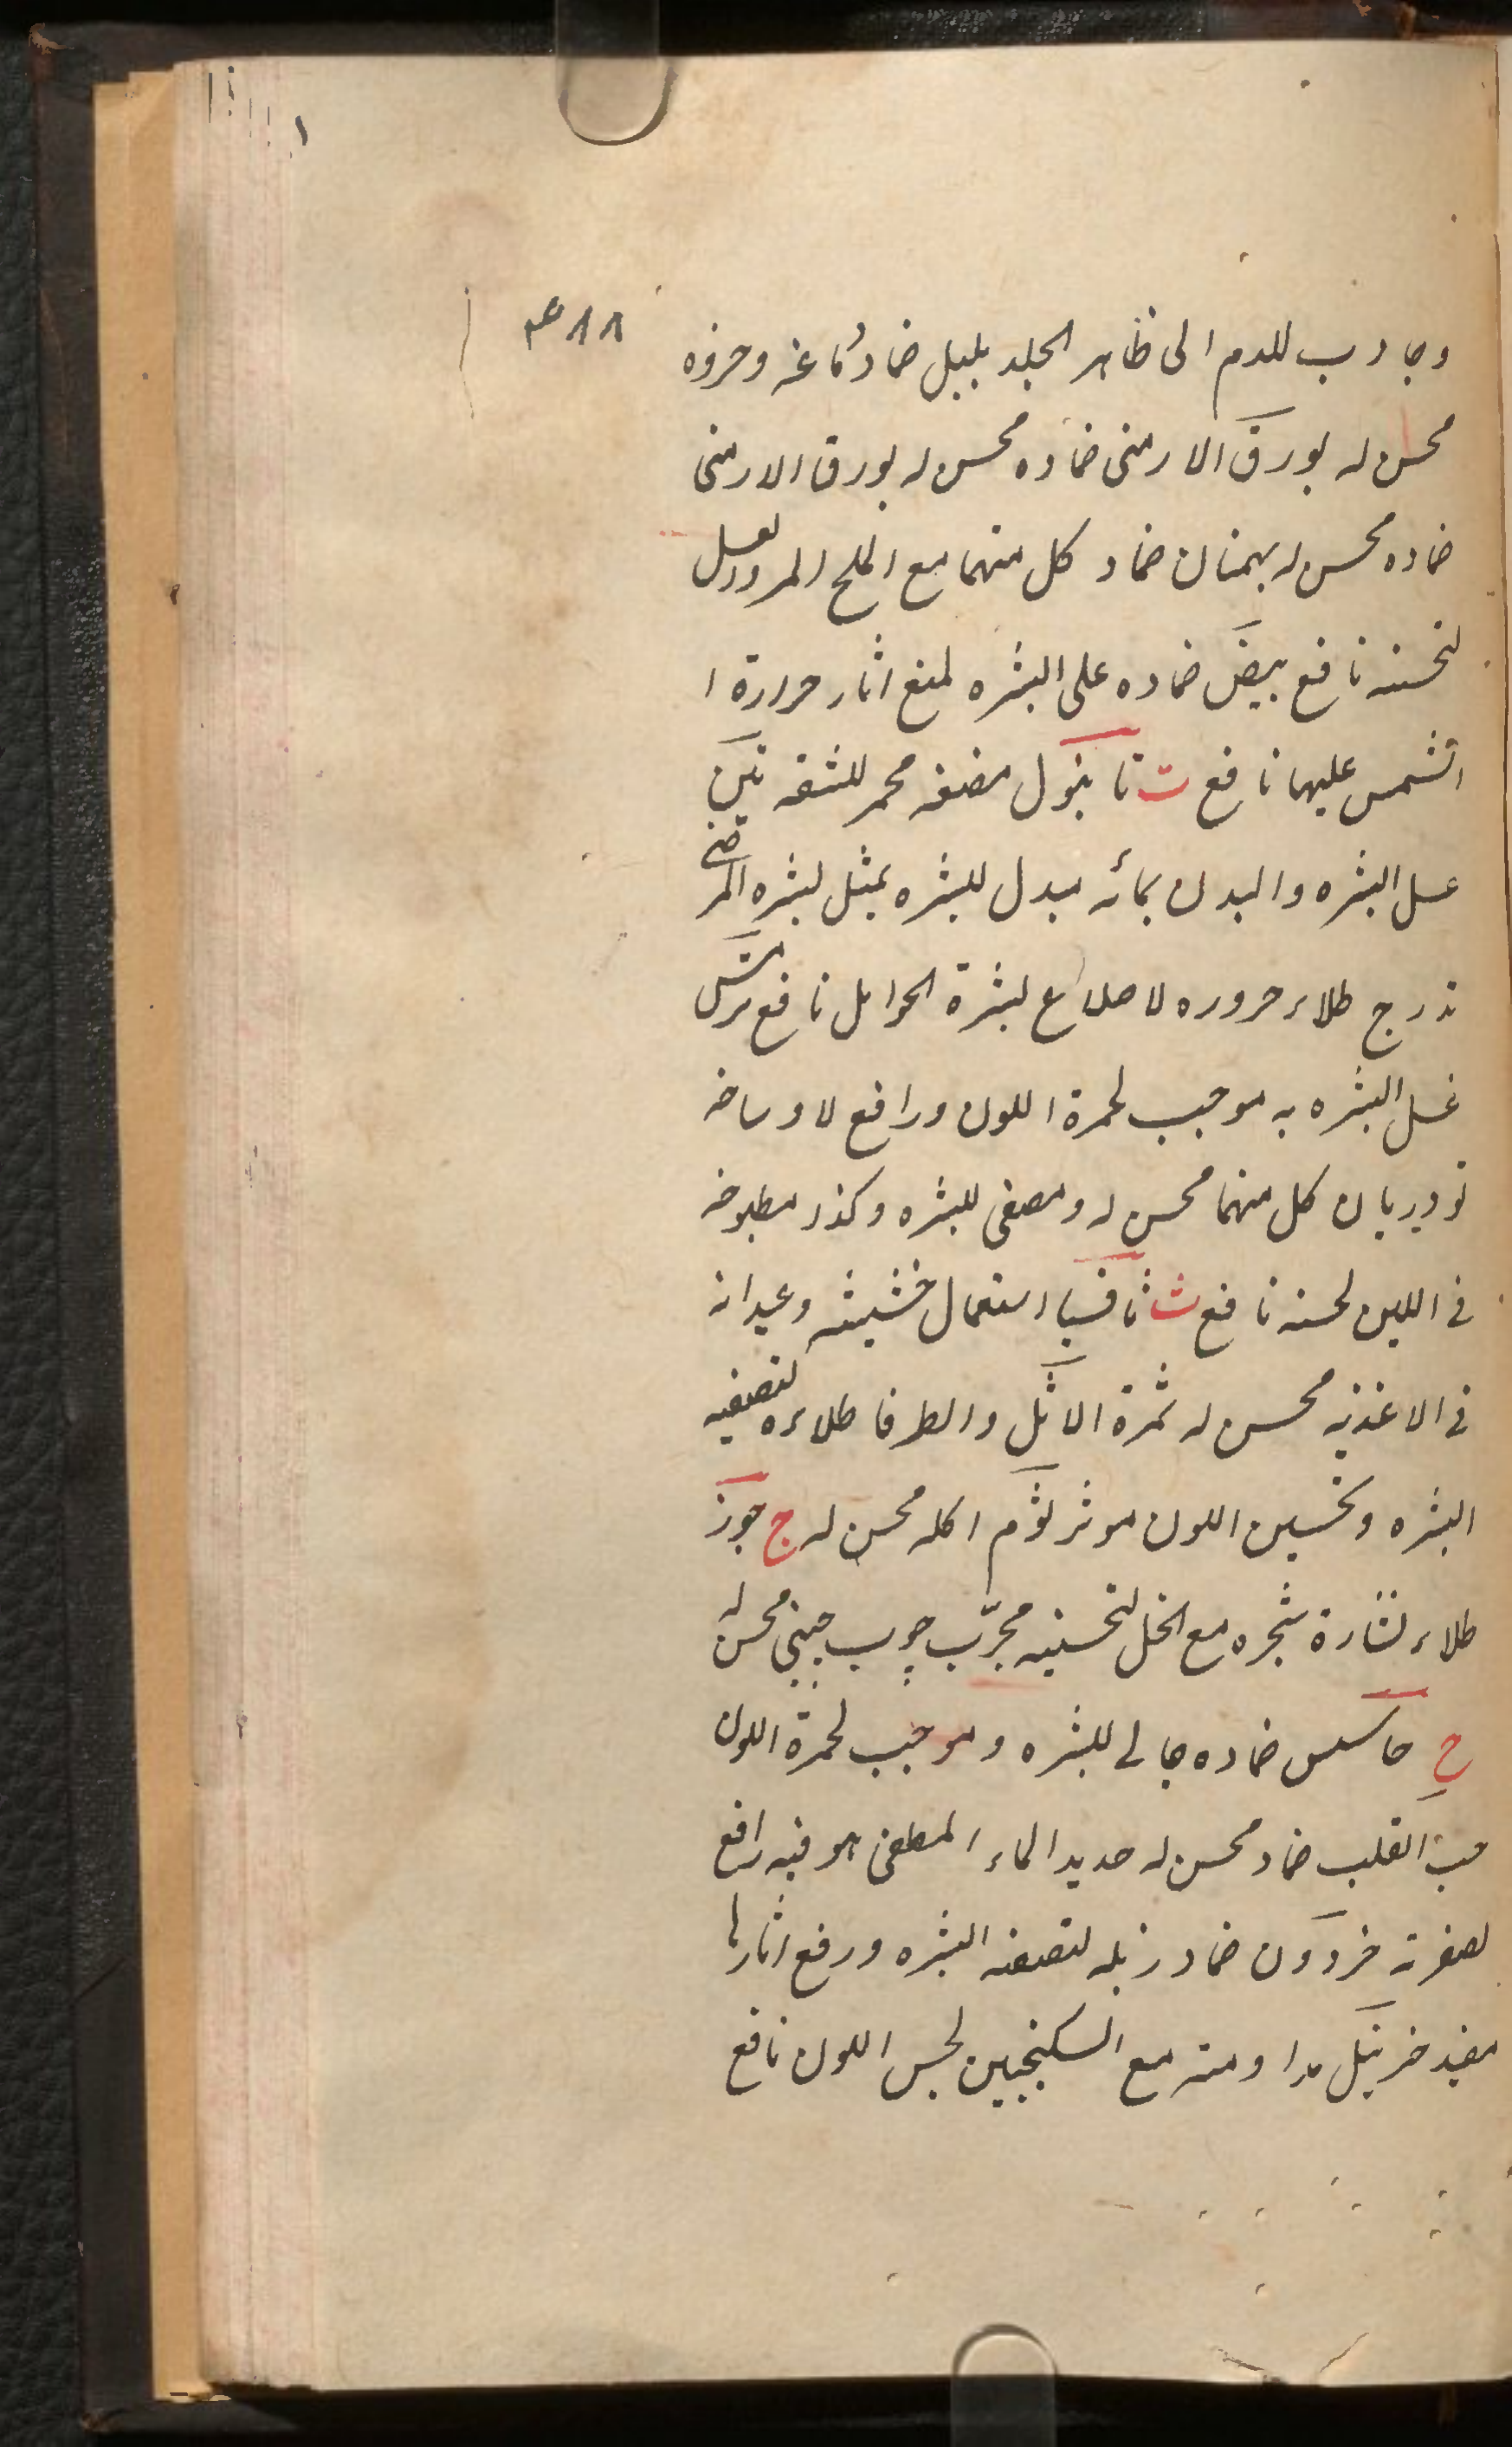 وجاذب للدم الى ظاهر الجلد بلبل ضماد دماغه وحروه
محسن له بورق الارمنى ضماده محسن له بورق الارمنى
ضماده محسن له بهمنان ضماد كل منهما مع الملح المر والعسل
لتحسنه نافع بيض ضماده على البشره لمنع اثار حرارة ا
الشمس عليها نافع ت تانبول مضغه محمر للشفه تين
غسل البشره والبدن بمائه مبدل للبشره بمثل بشره المرضى
تدرج طلاء حروره لاصلاع بشرة الحوامل نافع
غسل البشره به موجب لحمرة اللون ورافع لاوساخه
تودريان كل منهما محسن له ومصفى للبشره وكذا مطبوخه
فى اللبن لحسنه نافع ث ثافسيا استعمال خشيشه وعيدانه
فى الاغذيه محسن له ثمرة الاثل والطرفا طلاءه لتصفيه
البشره وتحسين اللون موثر ثوم اكله محسن له ج جوز
طلاء نشارة شجره مع الخل لتحسنيه مجرّب چوب چينى محسن له
ح حاسيس ضماده جالى للبشره وموجب لحمرة اللون
حب القلب ضماد محسن له حديد الماء المطفى هو فيه رافع
لصفرته خردون ضماد زبله لتصفه البشره ورفع اثارها
مفيد خرنيل مداومته مع السكنجبين لحسن اللون نافع